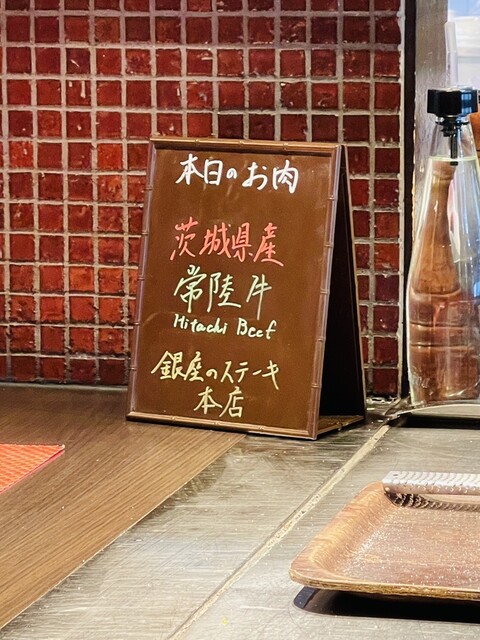 本日のお肉
茨城県産
常陸牛
Hitachi Beef
銀座のステーキ
本店